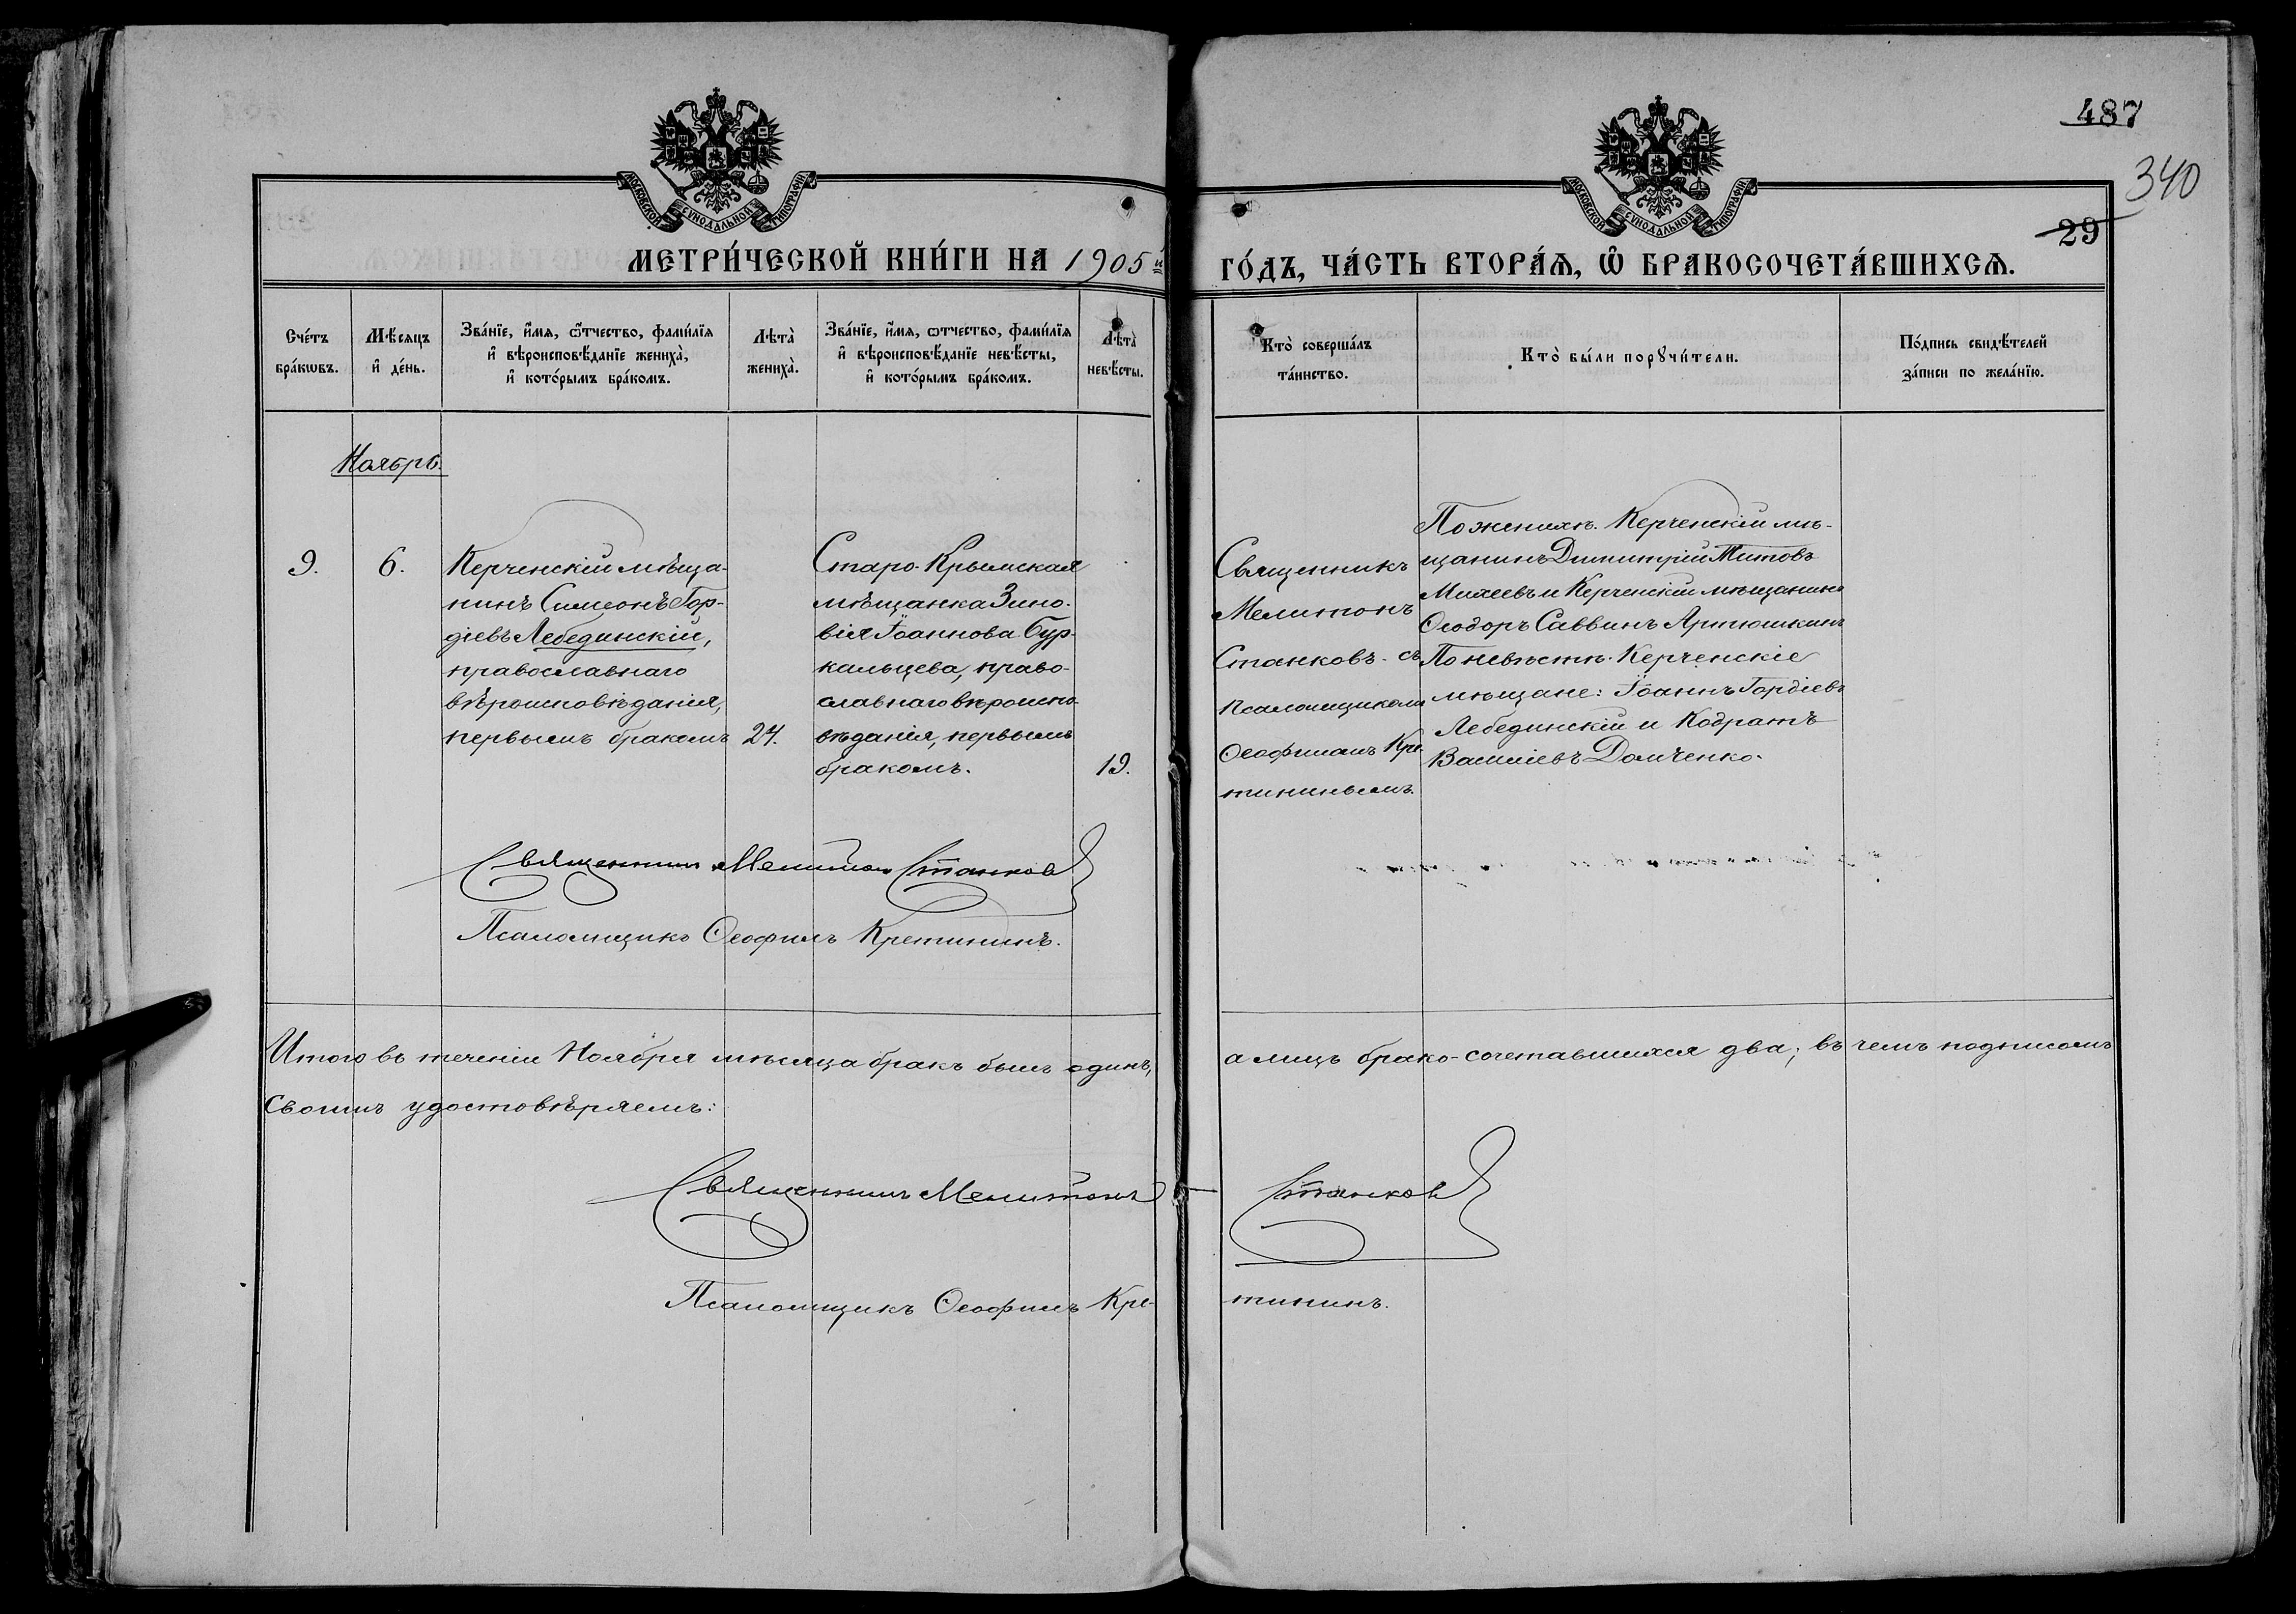 487
340
29
МОСКОВСКОЙ СѴНОДАЛЬНОЙ ТИПОГРАФІИ
МОСКОВСКОЙ СѴНОДАЛЬНОЙ ТИПОГРАФІИ
МЕТРИ́ЧЕСКОЙ КНИ́ГИ НА 1905й
ГО́ДЪ, ЧА́СТЬ ВТОРА́Ѧ, Ѡ҆ БРАКОСОЧЕТА́ВШИХСѦ.
Сче́тъ
бра́кѡвъ.
Мѣ́сѧцъ
и҆ де́нь.
Зва́нїе, и҆́мѧ, ѻ҆́тчество, фами́лїѧ
и҆ вѣроисповѣ́данїе жениха̀,
и҆ кото́рымъ бра́комъ.
Лѣта̀
жениха̀.
Зва́нїе, и҆́мѧ, ѻтчество, фами́лїѧ
и҆ вѣроисповѣ́данїе невѣ́сты,
и҆ кото́рымъ бра́комъ.
Лѣта̀
невѣ́сты.
Кто̀ соверша́лъ
та́инство.
Кто̀ бы́ли порꙋчи́тели.
По́дпись свидѣ́телей
за́писи по жела́нїю.
Ноябрь.
9.
6.
Керченскій мѣща-
нинъ Симеонъ Гор-
діевъ Лебединскій,
православнаго
вѣроисповѣданія,
первымъ бракомъ
24.
Старо-Крымская
мѣщанка Зино-
вія Іоаннова Бур-
кальцева, право-
славнаго вѣроиспо-
вѣданія, первымъ
бракомъ.
19.
Священникъ
Мелитонъ
Станковъ съ
псаломщикомъ
Ѳеофиломъ Кре-
тининымъ.
По женихѣ. Керченскій мѣ-
щанинъ Димитрій Титовъ
Михеевъ и Керченскій мѣщанинъ
Ѳеодоръ Саввинъ Артюшкинъ
По невѣстѣ. Керченскіе
мѣщане: Іоаннъ Гордіевъ
Лебединскій и Кодратъ
Василіевъ Домченко.
Священникъ Мелитонъ Станковъ
Псаломщикъ Ѳеофилъ Кретининъ.
Итого въ теченіи Ноября мѣсяца бракъ былъ одинъ, а лицъ брако-сочетавшихся два; въ чемъ подписомъ
своимъ удостовѣряемъ:
Священникъ Мелитонъ Станковъ
Псаломщикъ Ѳеофилъ Кре-тининъ.